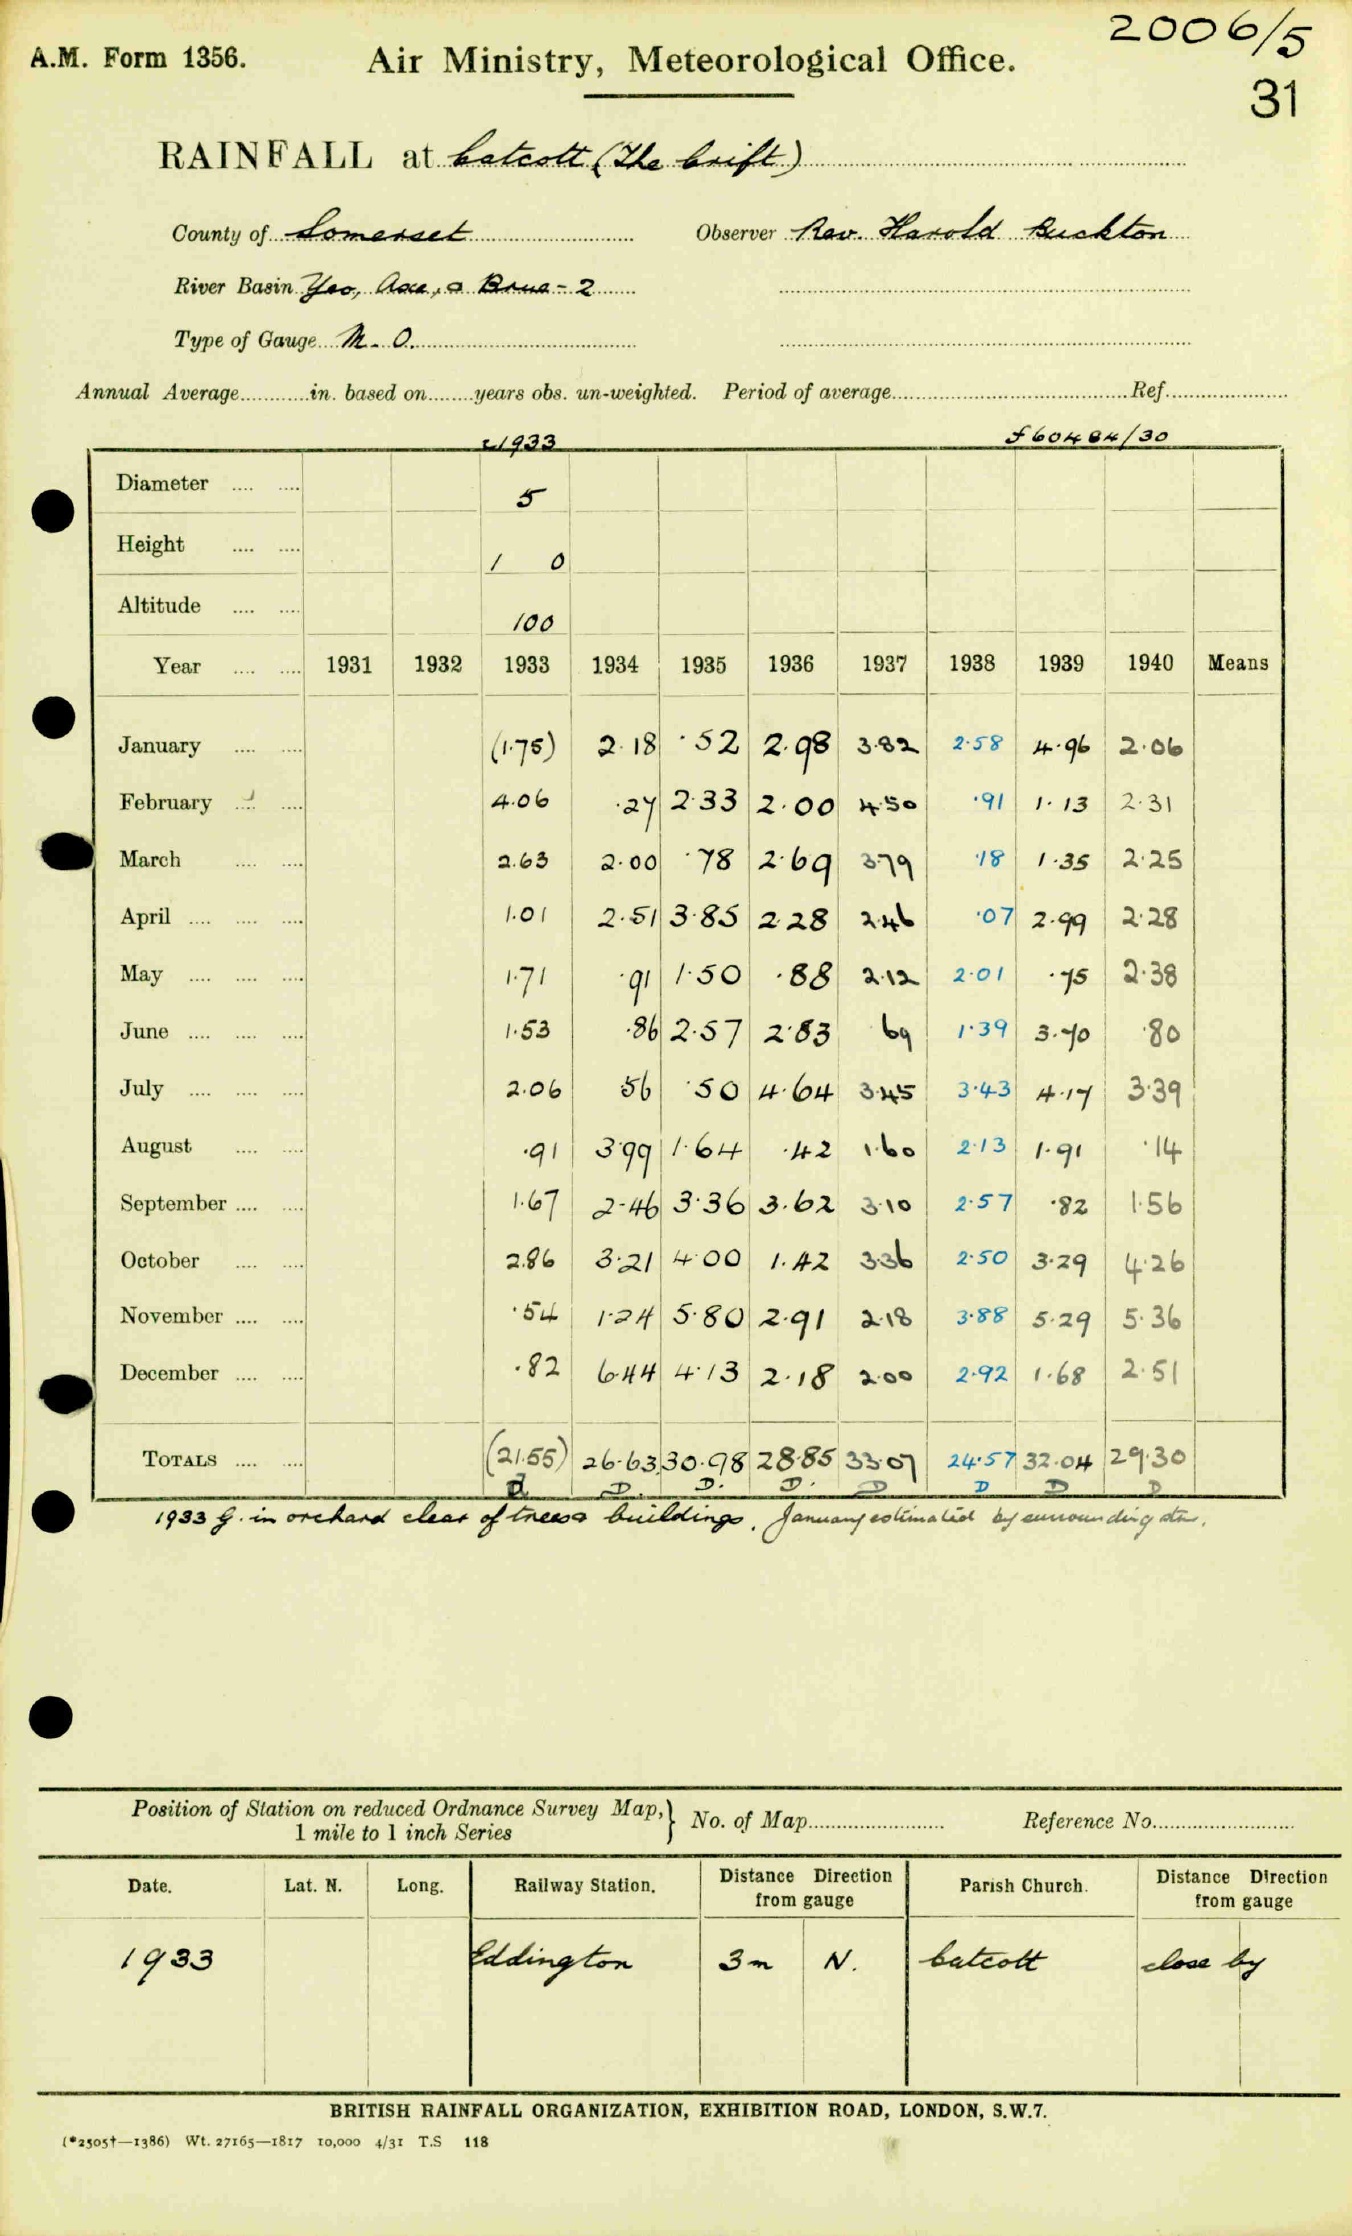 2006/5
A.M. Form 1356. Air Ministry, Meteorological Office.
31
RAINFALL at Catcott (The Crift)
County of Somerset Observer Rev. Harold Buckton
River Basin Yeo, Axe, & Brue - 2
Type of Gauge M. O.
Annual Average in. based on years obs. un-weighted. Period of average Ref.
1933 f60484/30
Diameter 5
Height 1 0
Altitude 100
Year 1931 1932 1933 1934 1935 1936 1937 1938 1939 1940 Means
January (1.75) 2.18 .52 2.98 3.82 2.58 4.96 2.06
February 4.06 .27 2.33 2.00 4.50 .91 1.13 2.31
March 2.63 2.00 .78 2.69 3.79 .18 1.35 2.25
April 1.01 2.51 3.85 2.28 2.46 .07 2.99 2.28
May 1.71 .91 1.50 .88 2.12 2.01 .75 2.38
June 1.53 .86 2.57 2.83 69 1.39 3.70 .80
July 2.06 56 .50 4.64 3.45 3.43 4.17 3.39
August .91 3.99 1.64 .42 1.60 2.13 1.91 .14
September 1.67 2.46 3.36 3.62 3.10 2.57 .82 1.56
October 2.86 3.21 4.00 1.42 3.36 2.50 3.29 4.26
November .54 1.24 5.80 2.91 2.18 3.88 5.29 5.36
December .82 6.44 4.13 2.18 2.00 2.92 1.68 2.51
TOTALS (21.55) 26.63 30.98 28.85 33.07 24.57 32.04 29.30
D D. D. D. D D D D
1933 G. in orchard clear of trees & buildings. January estimated by surrounding stns.
Position of Station on reduced Ordnance Survey Map, 1 mile to 1 inch Series } No. of Map Reference No.
Date. Lat. N. Long. Railway Station. Distance Direction from gauge Parish Church. Distance Direction from gauge
1933 Eddington 3m N. Catcott close by
BRITISH RAINFALL ORGANIZATION, EXHIBITION ROAD, LONDON, S.W.7.
(*2505†—1386) Wt. 27165—1817 10,000 4/31 T.S 118